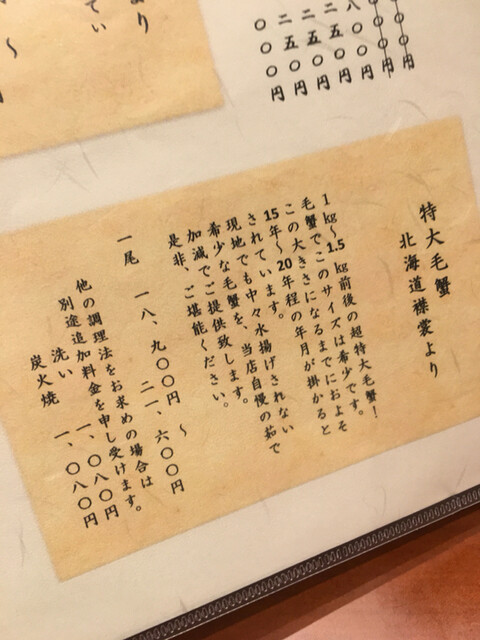 特大毛蟹
北海道襟裳より
1kg〜1.5kg前後の超特大毛蟹！
毛蟹でこのサイズは希少です。
この大きさになるまでにおよそ
15年〜20年程の年月が掛かると
されています。
現地でも中々水揚げされない
希少な毛蟹を、当店自慢の茹で
加減でご提供致します。
是非、ご堪能ください。
一尾 一八、九〇〇円 〜
二一、六〇〇円
他の調理法をお求めの場合は
別途追加料金を申し受けます。
洗い 一、〇八〇円
炭火焼 一、〇八〇円
〇〇円
〇〇円
八〇〇円
二五〇円
二五〇円
二五〇円
〇〇〇円
より
てい
〜
円